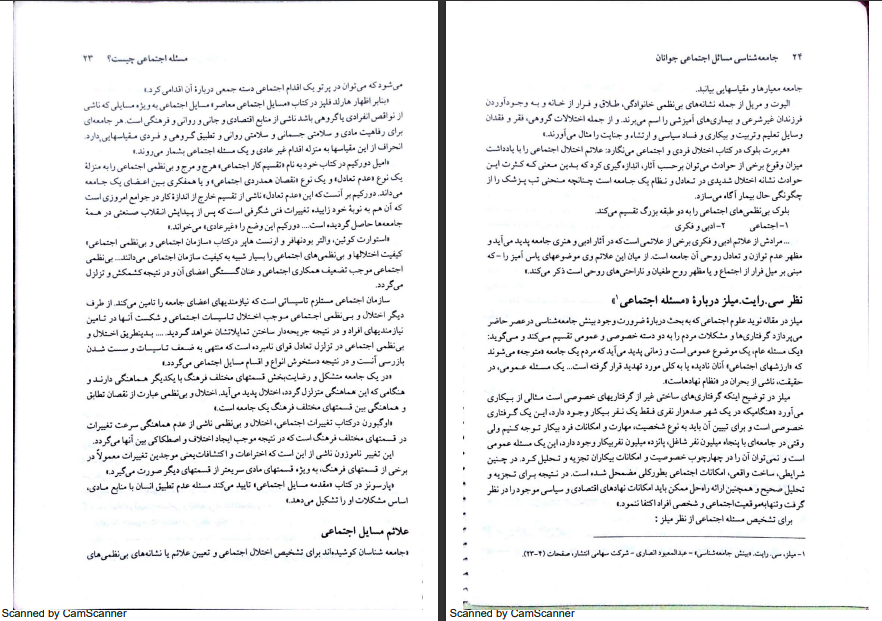 مسئله اجتماعی چیست؟ ۲۳
می‌شود که می‌توان در پرتو یک اقدام اجتماعی دسته جمعی دربارهٔ آن اقدامی کرد.»
«بنابر اظهار هارلد فلپز در کتاب «مسایل اجتماعی معاصر» مسایل اجتماعی به ویژه مسایلی که ناشی
از نواقص انفرادی یا گروهی باشد ناشی از منابع اقتصادی و جانی و روانی و فرهنگی است. هر جامعه‌ای
برای رفاهیت مادی و سلامتی جسمانی و سلامتی روانی و تطبیق گروهی و فردی مقیاسهایی دارد.
انحراف از این مقیاسها به منزله اقدام غیر عادی و یک مسئله اجتماعی بشمار می‌روند.»
«امیل دورکیم در کتاب خود به نام «تقسیم کار اجتماعی» هرج و مرج و بی‌نظمی اجتماعی را به منزلهٔ
یک نوع «عدم تعادل» و یک نوع «نقصان همدردی اجتماعی» و یا همفکری بین اعضای یک جامعه
می‌داند. دورکیم بر آنست که این «عدم تعادل» ناشی از تقسیم خارج از اندازهٔ کار در جوامع امروزی است
که آن هم به نوبهٔ خود زاییده تغییرات فنی شگرفی است که پس از پیدایش انقلاب صنعتی در همهٔ
جامعه‌ها حاصل گردیده است.... دورکیم این وضع را «غیرعادی» می‌خواند.»
«استوارت کوئین، والتر بودنهافر و ارنست هاپر در کتاب «سازمان اجتماعی و بی‌نظمی اجتماعی»
کیفیت اختلالها و بی‌نظمی‌های اجتماعی را بسیار شبیه به کیفیت سازمان اجتماعی می‌دانند... بی‌نظمی
اجتماعی موجب تضعیف همکاری اجتماعی و عنان گستگی اعضای آن و در نتیجه کشمکش و تزلزل
می‌گردد.
سازمان اجتماعی مستلزم تاسیساتی است که نیازمندیهای اعضای جامعه را تامین می‌کند. از طرف
دیگر اختلال و بی‌نظمی اجتماعی موجب اختلال تاسیسات اجتماعی و شکست آنها در تامین
نیازمندیهای افراد و در نتیجه جریحه‌دار ساختن تمایلاتشان خواهد گردید. .... بدینطریق اختلال و
بی‌نظمی اجتماعی در تزلزل تعادل قوای نامبرده است که منتهی به ضعف تاسیسات و سست شدن
بازرسی آنست و در نتیجه دستخوش انواع و اقسام مسایل اجتماعی می‌گردد.»
«در یک جامعه متشکل و رضایت‌بخش قسمتهای مختلف فرهنگ با یکدیگر هماهنگی دارند و
هنگامی که این هماهنگی متزلزل گردد، اختلال پدید می‌آید. اختلال و بی‌نظمی عبارت از نقصان تطابق
و هماهنگی بین قسمتهای مختلف فرهنگ یک جامعه است.»
«اوگبورن در کتاب تغییرات اجتماعی، اختلال و بی‌نظمی ناشی از عدم هماهنگی سرعت تغییرات
در قسمتهای مختلف فرهنگ است که در نتیجه موجب ایجاد اختلاف و اصطکاکی بین آنها می‌گردد.
این تغییر ناموزون ناشی از این است که اختراعات و اکتشافات یعنی موجدین تغییرات معمولاً در
برخی از قسمتهای فرهنگ، به ویژه قسمتهای مادی سریعتر از قسمتهای دیگر صورت می‌گیرد.»
«پارسونز در کتاب «مقدمه مسایل اجتماعی» تایید می‌کند مسئله عدم تطبیق انسان با منابع مادی،
اساس مشکلات او را تشکیل می‌دهد.»
علائم مسایل اجتماعی
«جامعه شناسان کوشیده‌اند برای تشخیص اختلال اجتماعی و تعیین علائم یا نشانه‌های بی‌نظمی‌های
Scanned by CamScanner
۲۴ جامعه‌شناسی مسائل اجتماعی جوانان
جامعه معیارها و مقیاسهایی بیابند.
الیوت و مریل از جمله نشانه‌های بی‌نظمی خانوادگی، طلاق و فرار از خانه و به وجود آوردن
فرزندان غیرشرعی و بیماری‌های آمیزشی را اسم می‌برند. و از جمله اختلالات گروهی، فقر و فقدان
وسایل تعلیم و تربیت و بیکاری و فساد سیاسی و ارتشاء و جنایت را مثال می‌آورند.»
«هربرت بلوک در کتاب اختلال فردی و اجتماعی می‌نگارد: علائم اختلال اجتماعی را با یادداشت
میزان وقوع برخی از حوادث می‌توان برحسب آثار، اندازه‌گیری کرد که بدین معنی که کثرت این
حوادث نشانه اختلال شدیدی در تعادل و نظام یک جامعه است چنانچه منحنی تب پزشک را از
چگونگی حال بیمار آگاه می‌سازد.
بلوک بی‌نظمی‌های اجتماعی را به دو طبقه بزرگ تقسیم می‌کند.
۱-اجتماعی ۲-ادبی و فکری
...مرادش از علائم ادبی و فکری برخی از علائمی است که در آثار ادبی و هنری جامعه پدید می‌آید و
مظهر عدم توازن و تعادل روحی آن جامعه است. از میان این علائم وی موضوعهای یاس آمیز را -که
مبنی بر میل فرار از اجتماع و یا مظهر روح طغیان و ناراحتی‌های روحی است ذکر می‌کند.»
نظر سی.رایت.میلز دربارهٔ «مسئله اجتماعی۱»
میلز در مقاله نوید علوم اجتماعی که به بحث دربارهٔ ضرورت وجود بینش جامعه‌شناسی در عصر حاضر
می‌پردازد گرفتاری‌ها و مشکلات مردم را به دو دسته خصوصی و عمومی تقسیم می‌کند و می‌گوید:
«یک مسئله عام، یک موضوع عمومی است و زمانی پدید می‌آید که مردم یک جامعه «متوجه» می‌شوند
که «ارزشهای اجتماعی» آنان نادیده یا به کلی مورد تهدید قرار گرفته است... یک مسئله عمومی، در
حقیقت، ناشی از بحران در «نظام نهادها»ست.»
میلز در توضیح اینکه گرفتاری‌های ساختی غیر از گرفتاریهای خصوصی است مثالی از بیکاری
می‌آورد «هنگامیکه در یک شهر صدهزار نفری فقط یک نفر بیکار وجود دارد، این یک گرفتاری
خصوصی است و برای تبیین آن باید به نوع شخصیت، مهارت و امکانات فرد بیکار توجه کنیم ولی
وقتی در جامعه‌ای با پنجاه میلیون نفر شاغل، پانزده میلیون نفر بیکار وجود دارد، این یک مسئله عمومی
است و نمی‌توان آن را در چهارچوب خصوصیت و امکانات بیکاران تجزیه و تحلیل کرد. در چنین
شرایطی، ساخت واقعی، امکانات اجتماعی بطورکلی مضمحل شده است. در نتیجه برای تجزیه و
تحلیل صحیح و همچنین ارائه راه‌حل ممکن باید امکانات نهادهای اقتصادی و سیاسی موجود را در نظر
گرفت و تنها به موقعیت اجتماعی و شخصی افراد اکتفا ننمود.»
برای تشخیص مسئله اجتماعی از نظر میلز :
۱- میلز، سی. رایت. «بینش جامعه‌شناسی» - عبدالمعبود انصاری - شرکت سهامی انتشار، صفحات (۴-۲۳).
Scanned by CamScanner